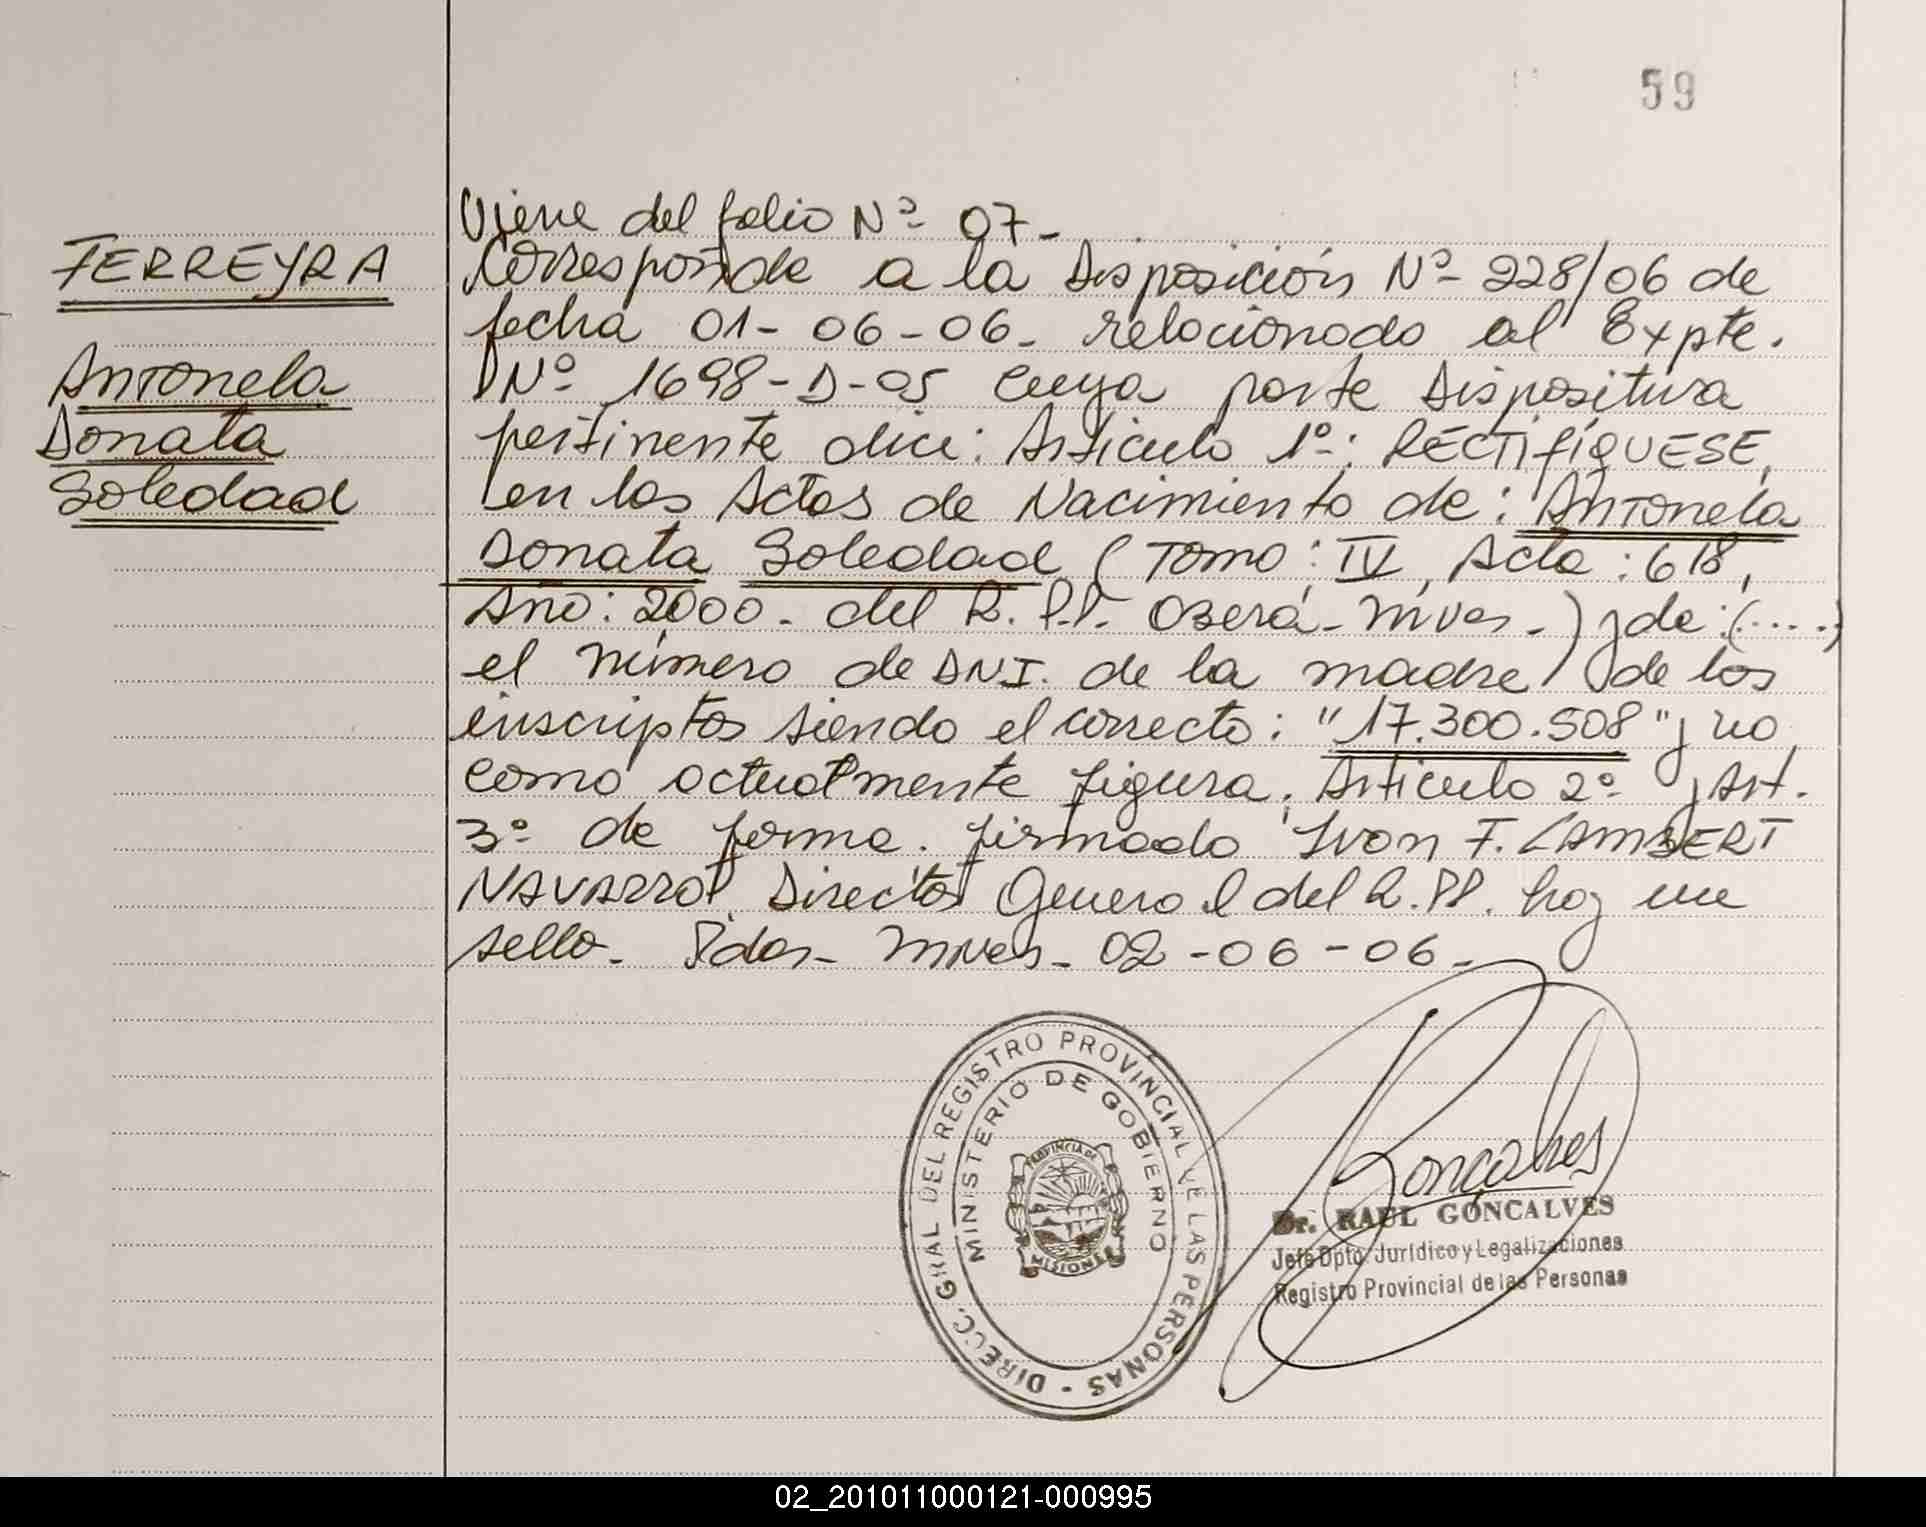 59
FERREYRA
Antonela
Donata
Soledad
Viene del folio Nº 07-
Corresponde a la Disposición Nº 228/06 de
fecha 01-06-06. relacionado al Expte.
Nº 1698-D-05 cuya parte Dispositiva
pertinente dice: Artículo 1º: RECTIFÍQUESE,
en las Actas de Nacimiento de: Antonela
Donata Soledad (Tomo: IV, Acta: 618,
Año: 2000- del R.P.P. Oberá-Mnes-) y de: (....)
el número de DNI. de la madre de los
inscriptos siendo el correcto: "17.300.508" y no
como actualmente figura. Artículo 2º y Art.
3º de forma. firmado Ivon F. LAMBERT
NAVARRO. Director General del R.PP. hay un
sello. Pdas- Mnes- 02-06-06-
DIRECC. GRAL DEL REGISTRO PROVINCIAL DE LAS PERSONAS -
MINISTERIO DE GOBIERNO
PROVINCIA DE
MISIONES
Goncalves
Dr. RAUL GONCALVES
Jefe Dpto. Jurídico y Legalizaciones
Registro Provincial de las Personas
02_201011000121-000995